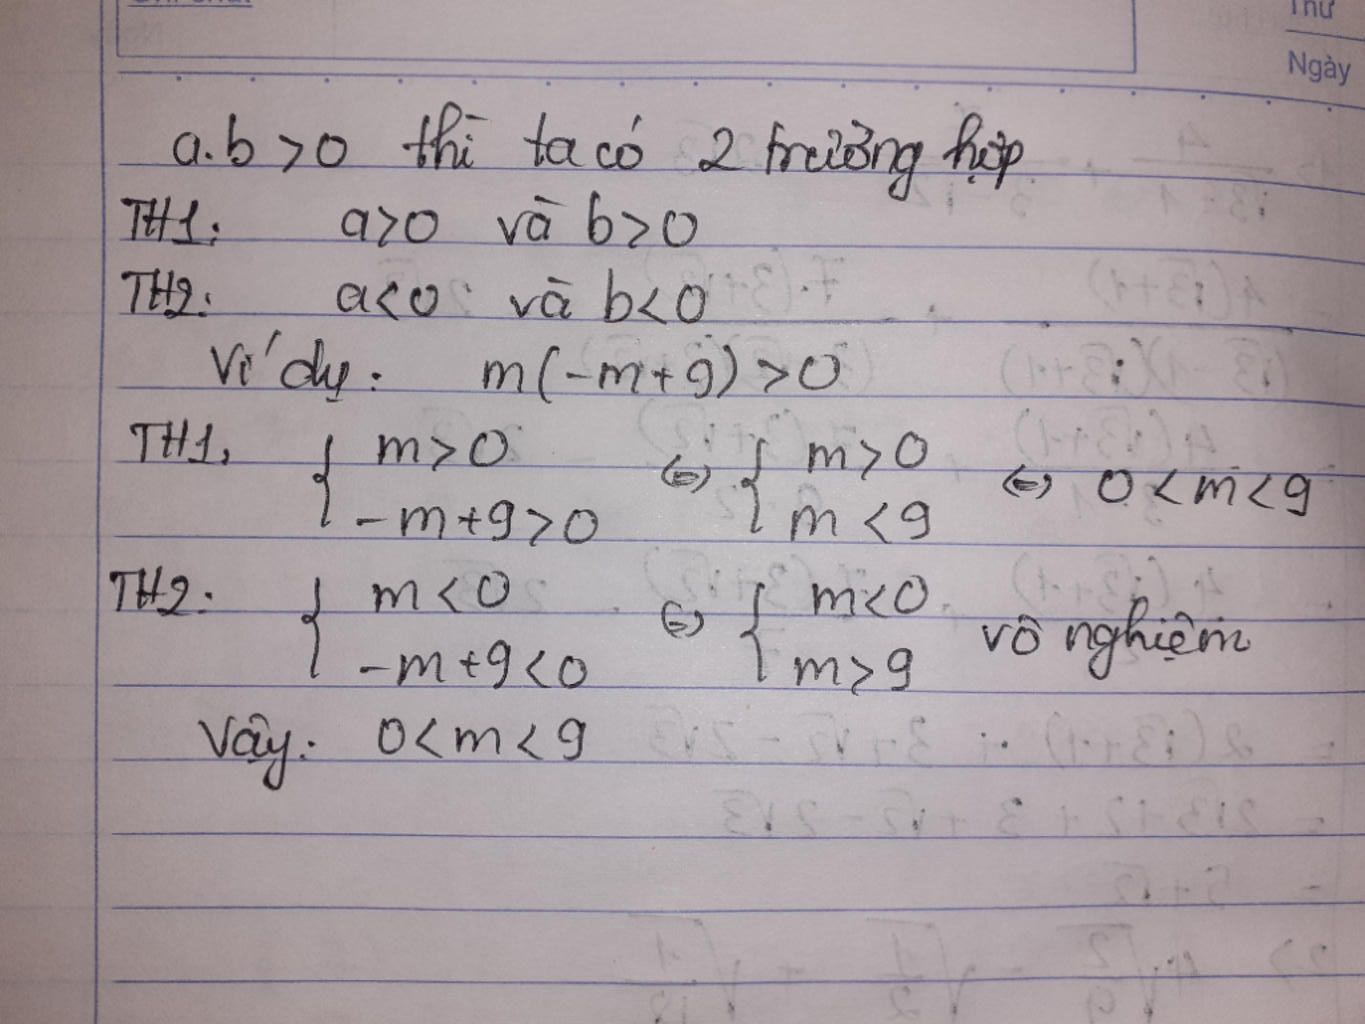 Thứ
Ngày
a.b > 0 thì ta có 2 trường hợp
TH1: a>0 và b>0
TH2: a<0 và b<0
Ví dụ: m(-m+9) > 0
TH1, { m > 0 ⇔ { m > 0 ⇔ 0 < m < 9
-m+9 > 0 m < 9
TH2: { m < 0 ⇔ { m < 0 vô nghiệm
-m+9 < 0 m > 9
Vậy: 0 < m < 9